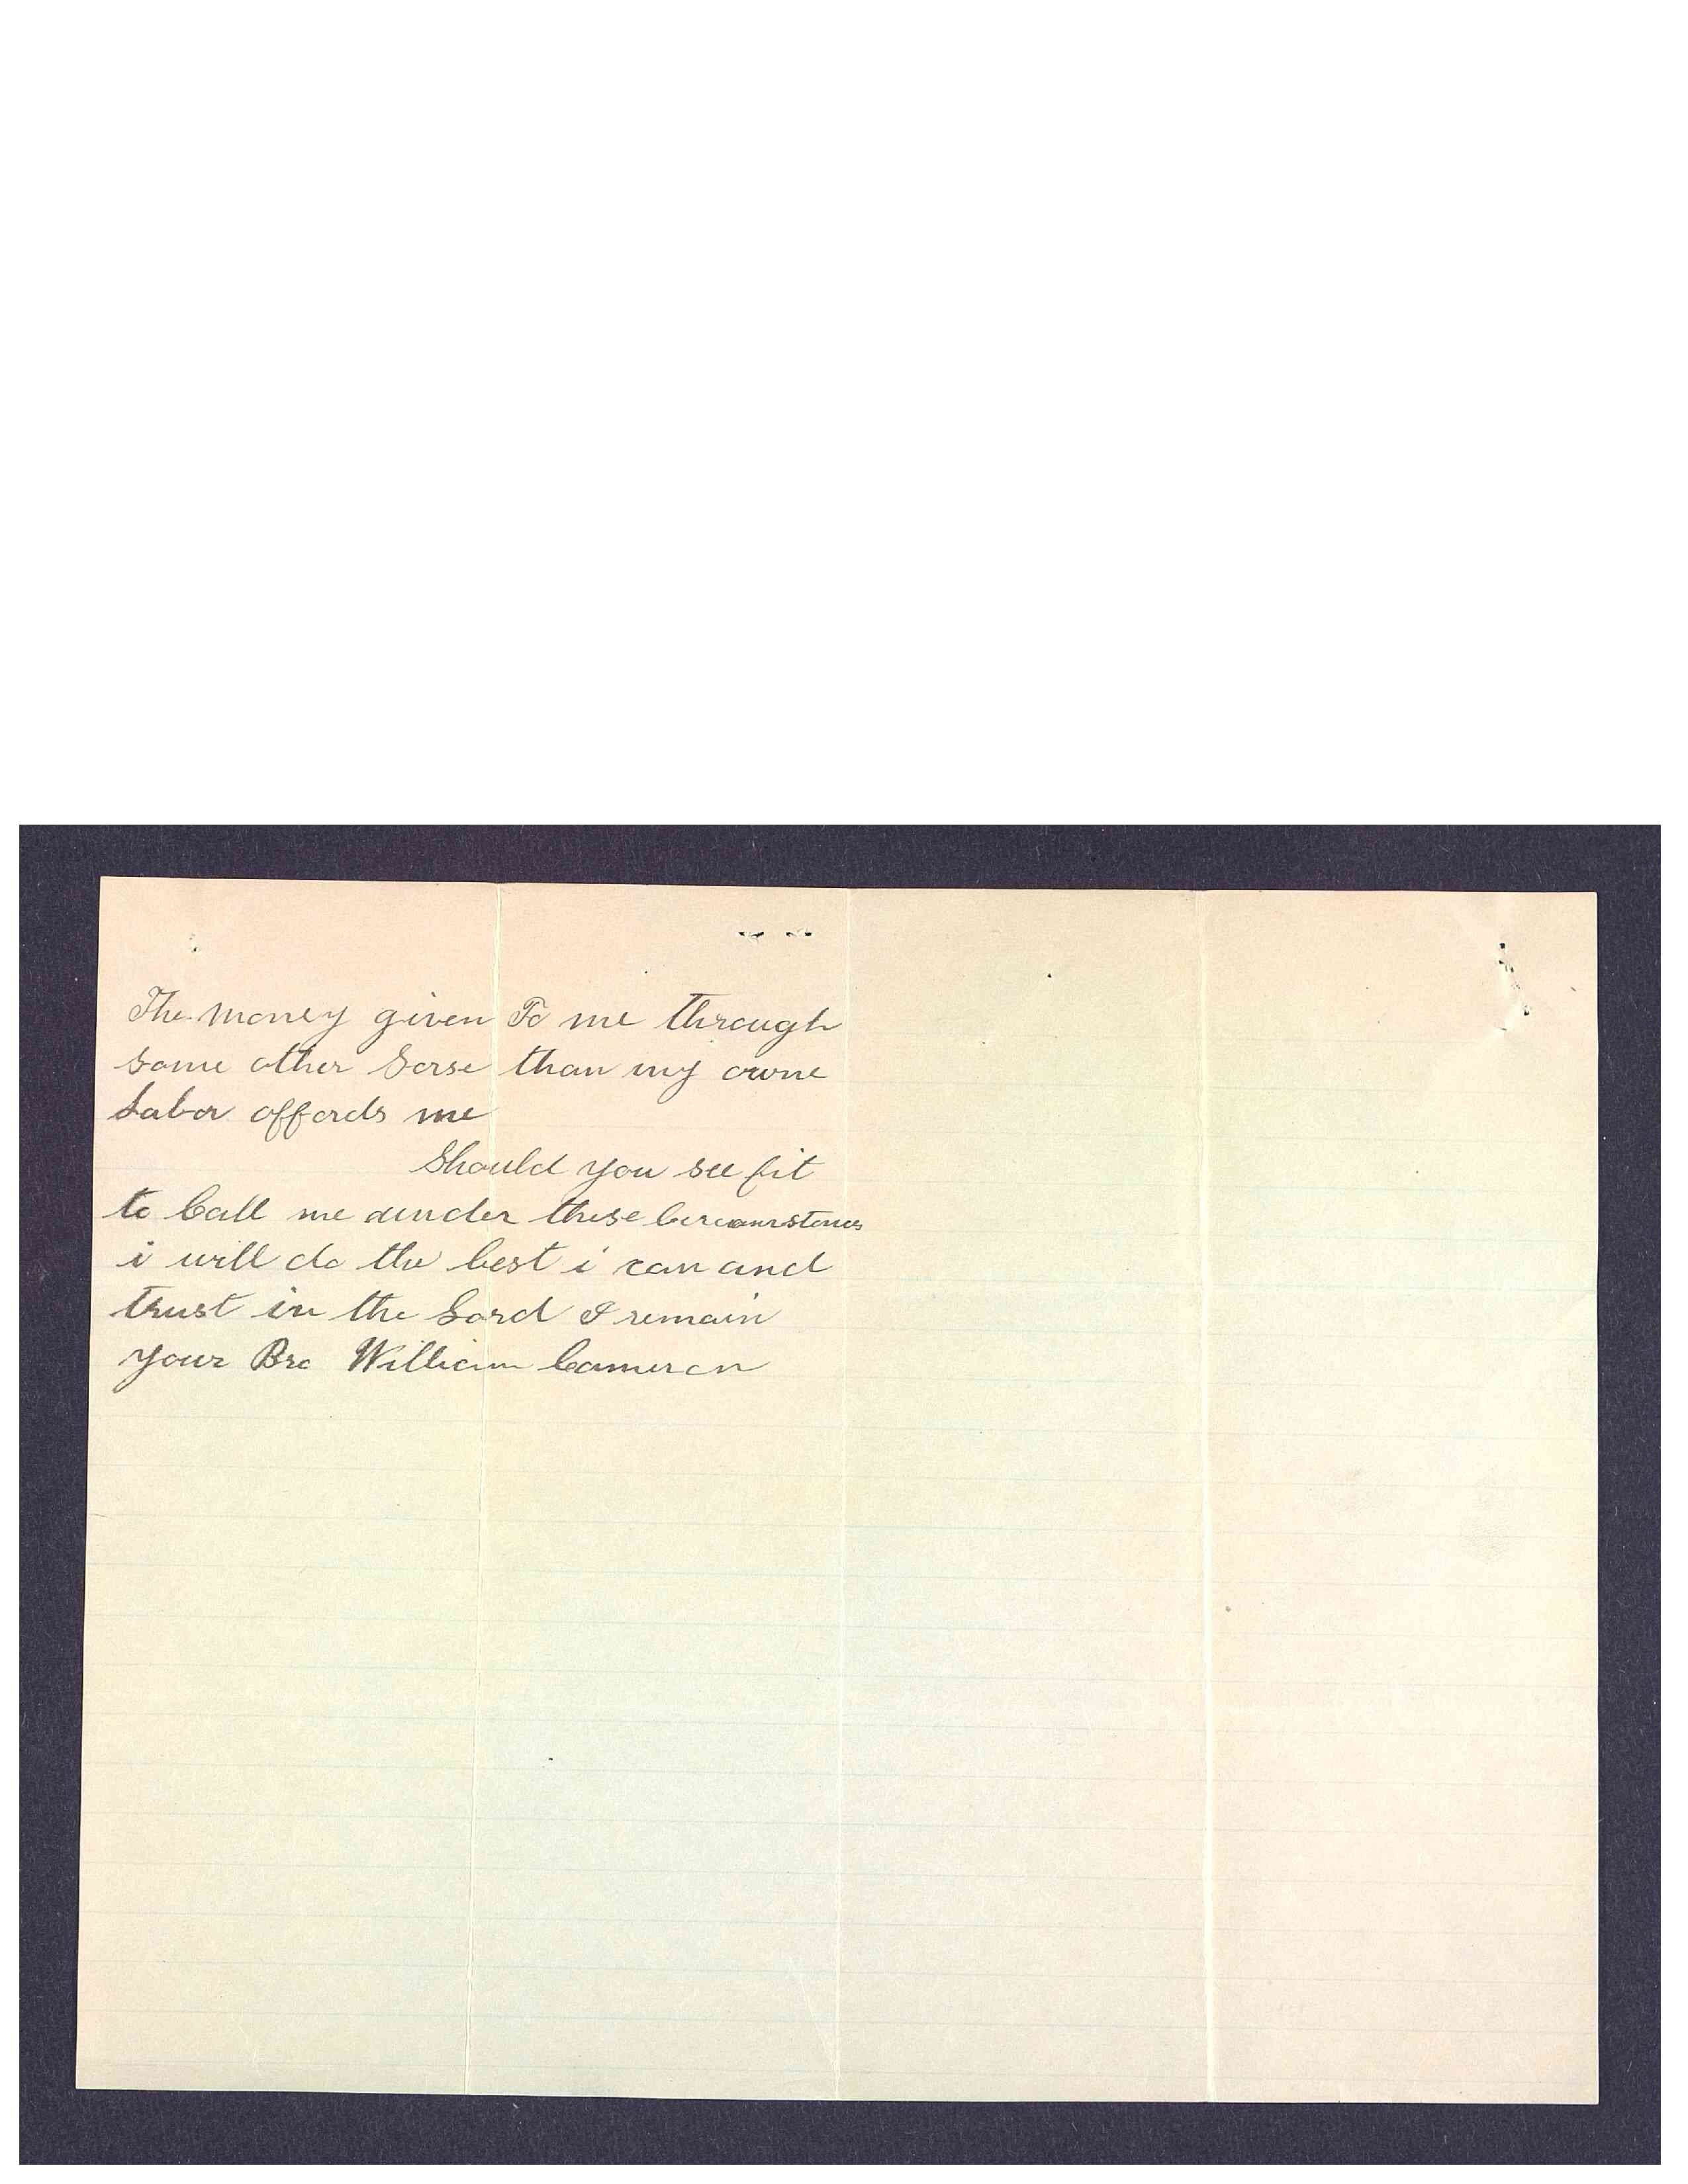 The money given To me through
some other Sorse than my owne
Labor affords me
Should you see fit
to Call me under these Circumstences
i will do the best i can and
trust in the Lord I remain
your Bro William Cameron